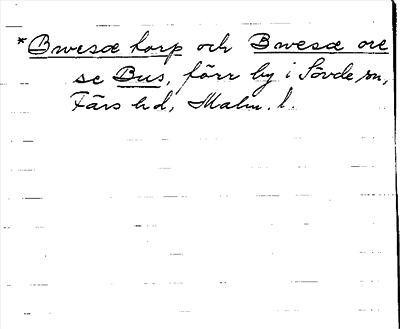 *Bwesæ torp och Bwesæ ore
se Bus, förr by i Sövde sn,
Färs hd, Malm. l.